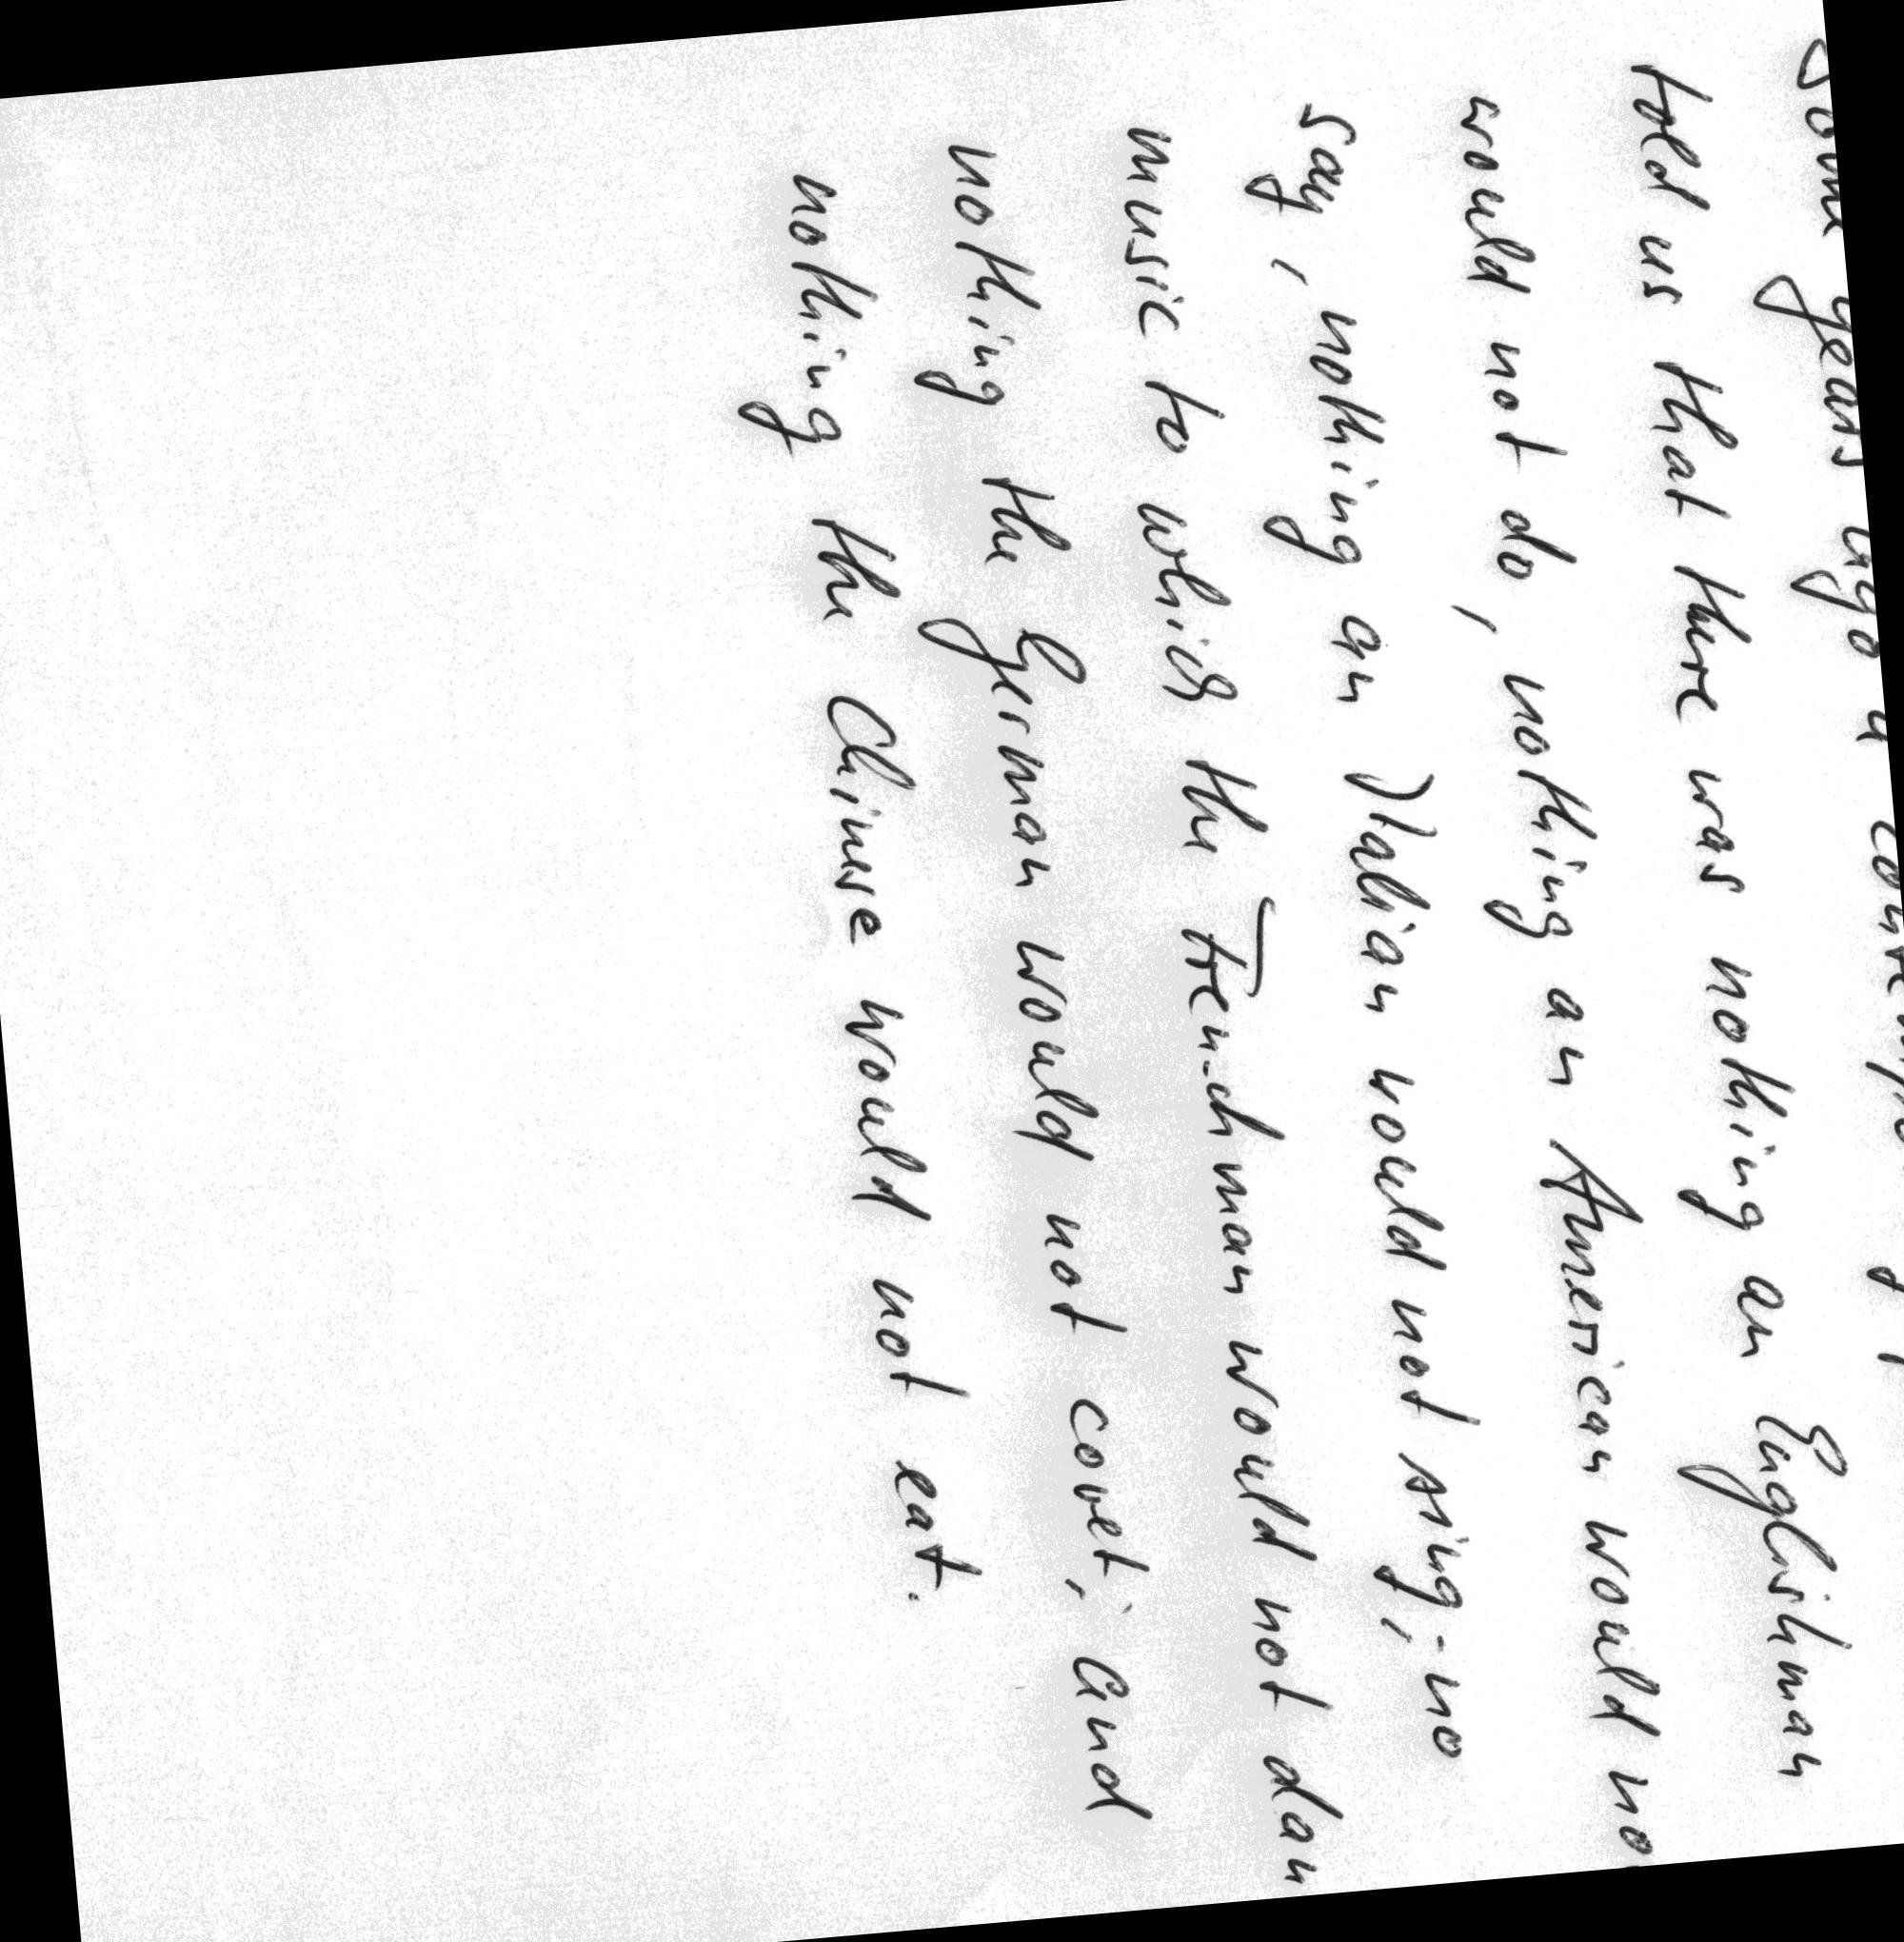 Some years ago a
told us that there was nothing an Englishman
would not do, nothing an American would no
say, nothing an Italian would not sing; - no
music to which the Frenchman would not dan
nothing the German would not covet; and
nothing the Chinese would not eat.